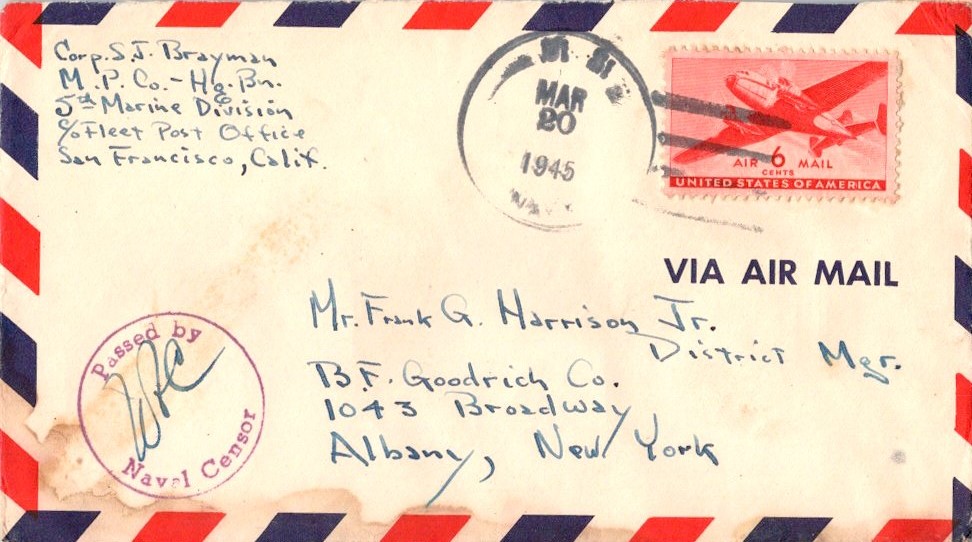 Corp. S. J. Brayman
M. P. Co. - Hq. Bn.
5th Marine Division
c/o Fleet Post Office
San Francisco, Calif.
MAR
20
1945
AIR 6 MAIL
CENTS
UNITED STATES OF AMERICA
VIA AIR MAIL
Mr. Frank G. Harrison Jr.
District Mgr.
B.F. Goodrich Co.
1043 Broadway
Albany, New York
Passed by
Naval Censor